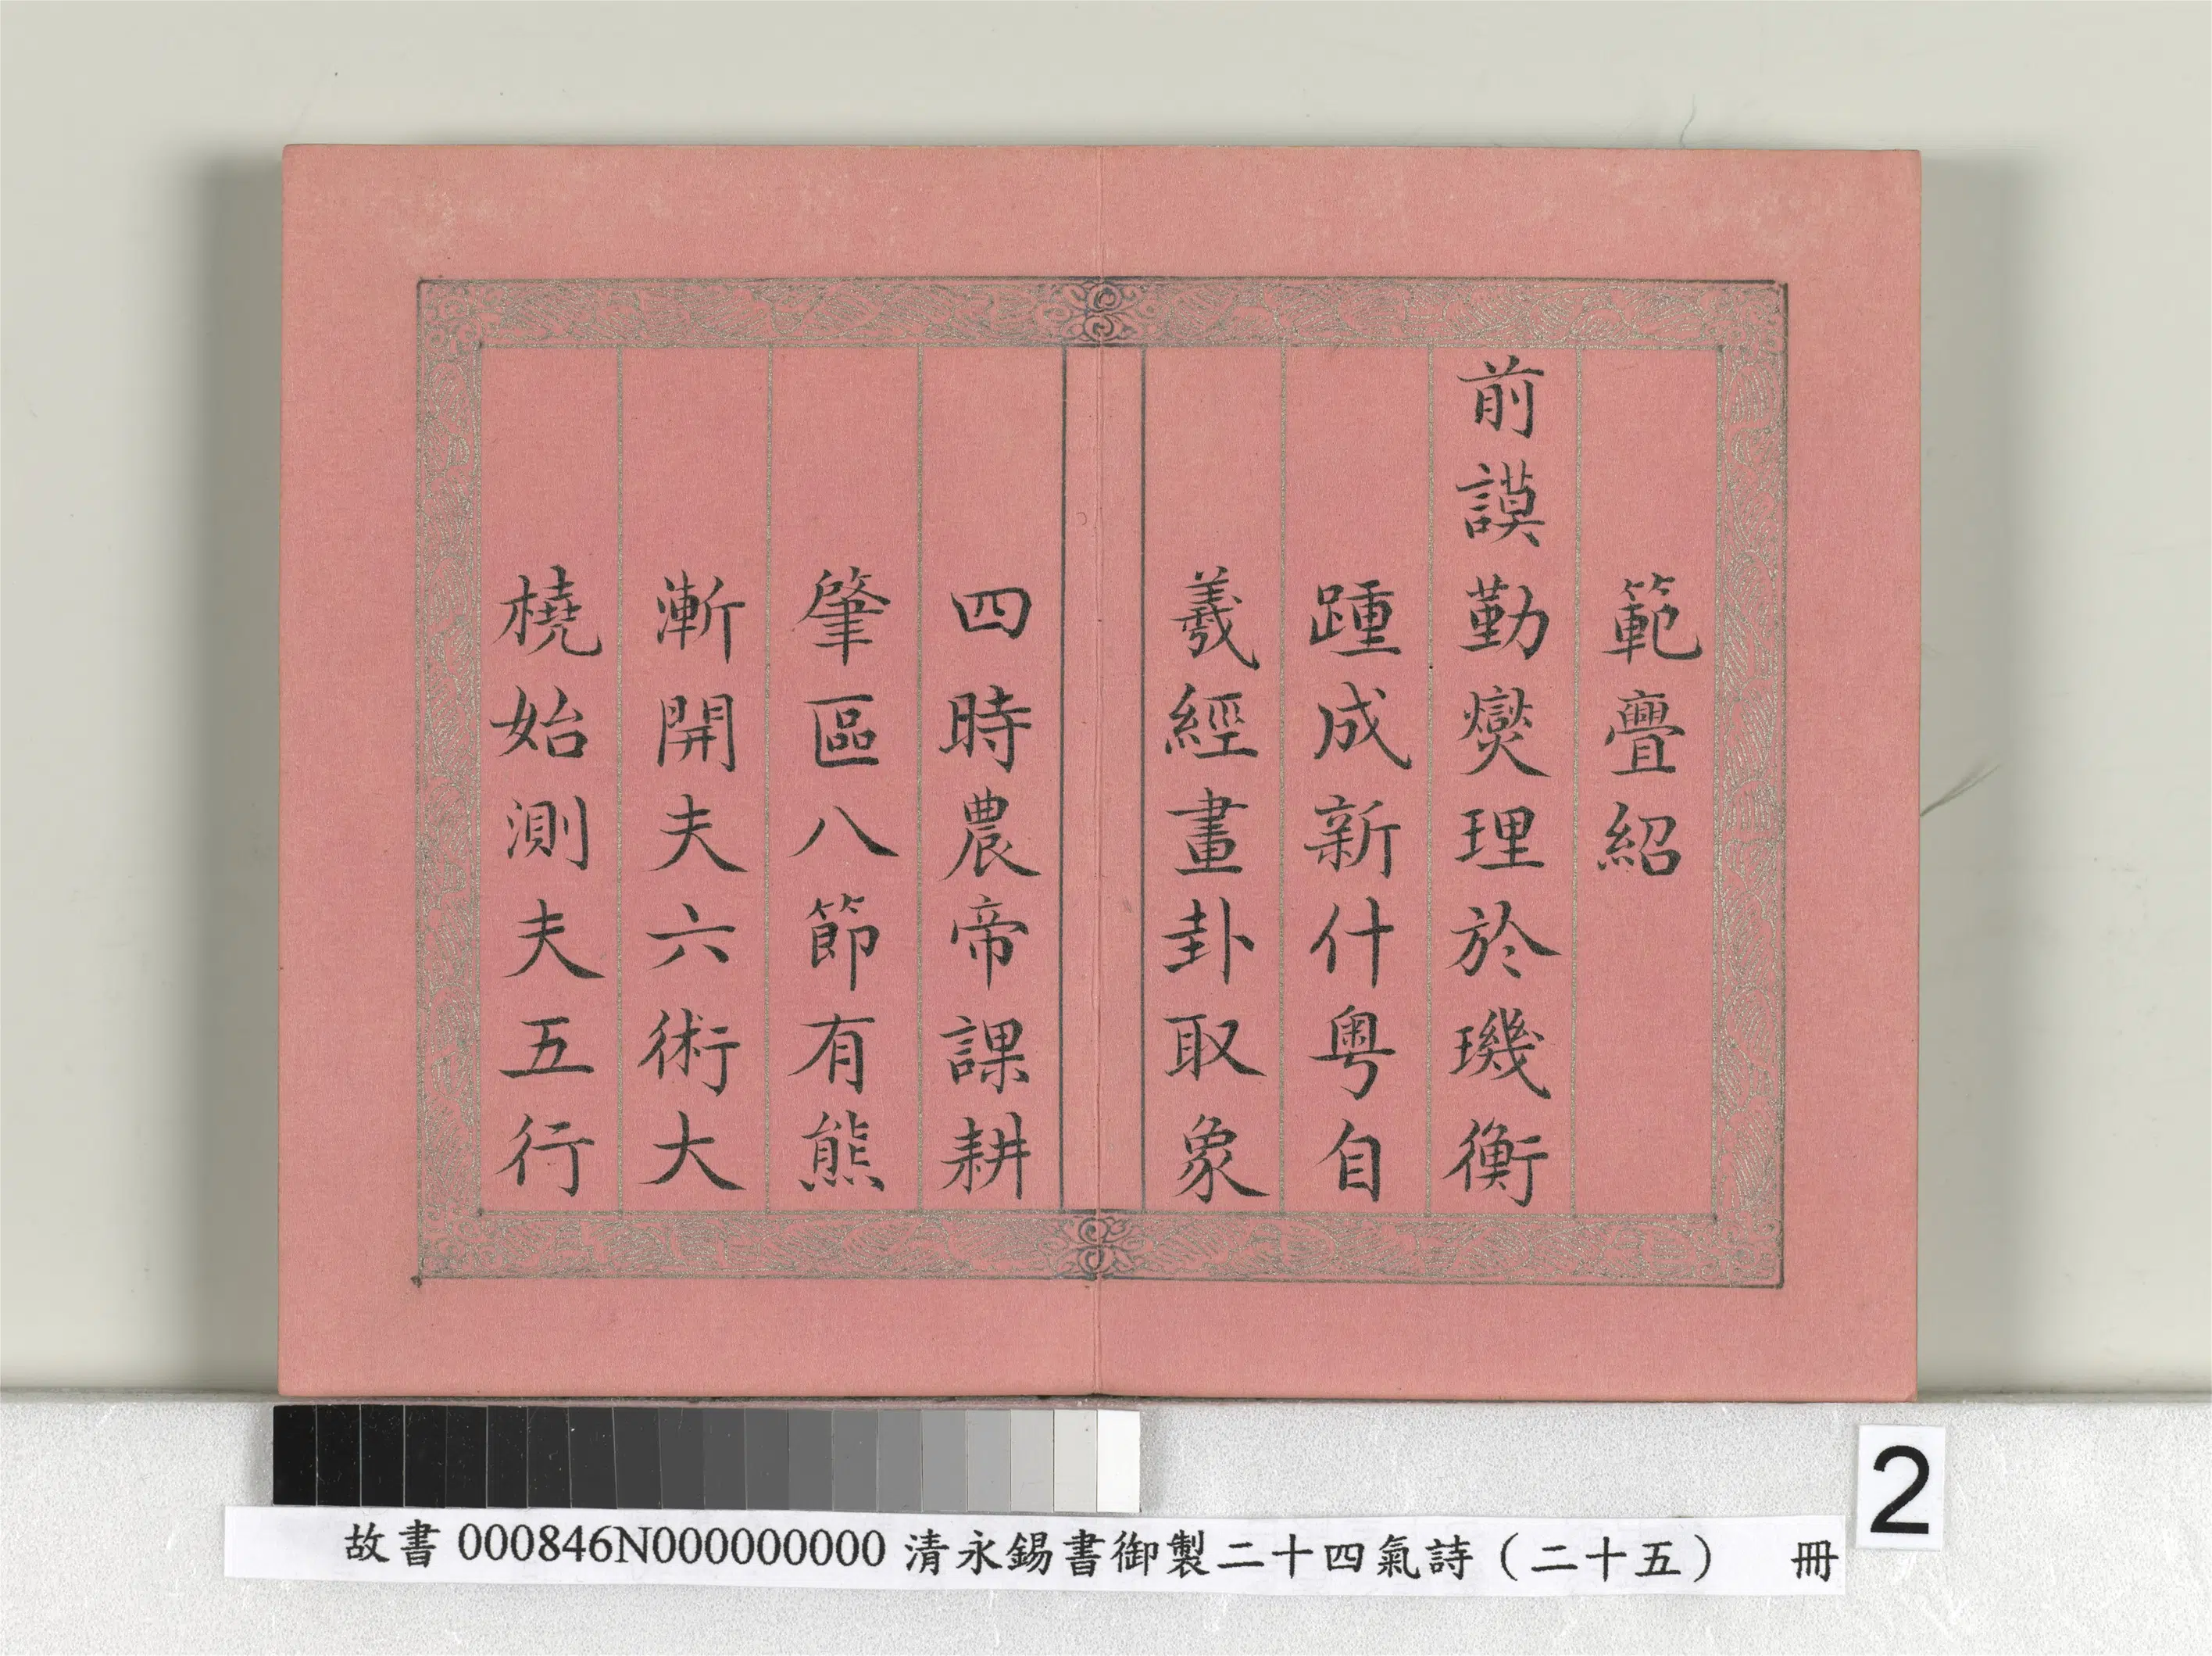 範疊紹
前謨勤燮理於璣衡
踵成新什粵自
羲經畫卦取象
四時農帝課耕
肇區八節有熊
漸開夫六術大
橈始測夫五行
2
故書000846N000000000 清永錫書御製二十四氣詩（二十五） 冊